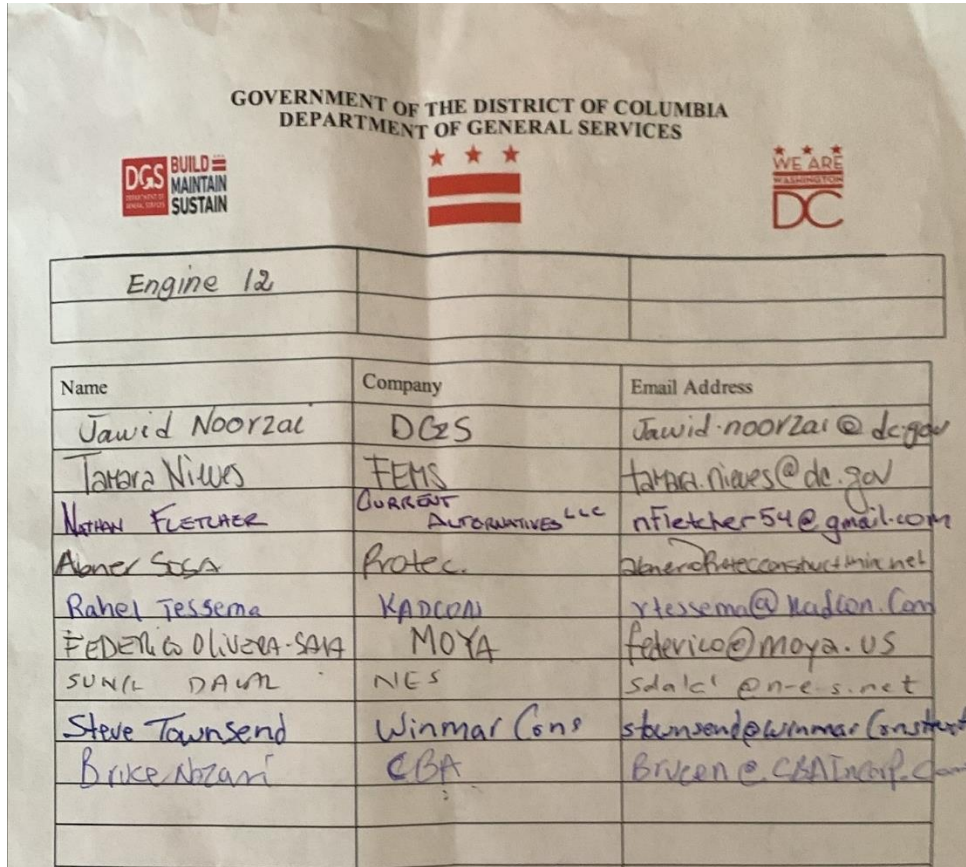 GOVERNMENT OF THE DISTRICT OF COLUMBIA
DEPARTMENT OF GENERAL SERVICES
DGS BUILD MAINTAIN SUSTAIN
WE ARE WASHINGTON DC
Engine 12
Name Company Email Address
Jawid Noorzai DGS Jawid.noorzai@dc.gov
Tamara Nieves FEMS tamara.nieves@dc.gov
NATHAN FLETCHER CURRENT ALTERNATIVES LLC nfletcher54@gmail.com
Abner SOSA Protec.
Rahel Tessema KADCON rtessema@kadcon.com
FEDERICO OLIVERA-SALA MOYA federico@moya.us
SUNIL DALAL NES @n-e-s.net
Steve Townsend Winmar Cons
Bruce Nozari CBA Brucen@CBAIncorp.Com